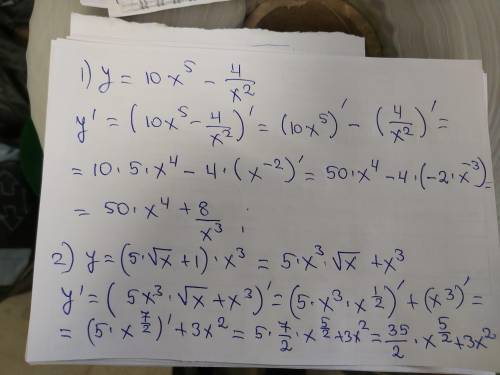 1) y = 10x⁵ - 4/x²
y' = (10x⁵ - 4/x²)' = (10x⁵)' - (4/x²)' =
= 10·5·x⁴ - 4·(x⁻²)' = 50·x⁴ - 4·(-2·x⁻³) =
= 50·x⁴ + 8/x³ ;
2) y = (5·√x + 1)·x³ = 5·x³·√x + x³
y' = (5x³·√x + x³)' = (5·x³·x^(1/2))' + (x³)' =
= (5·x^(7/2))' + 3x² = 5·7/2·x^(5/2) + 3x² = 35/2·x^(5/2) + 3x²